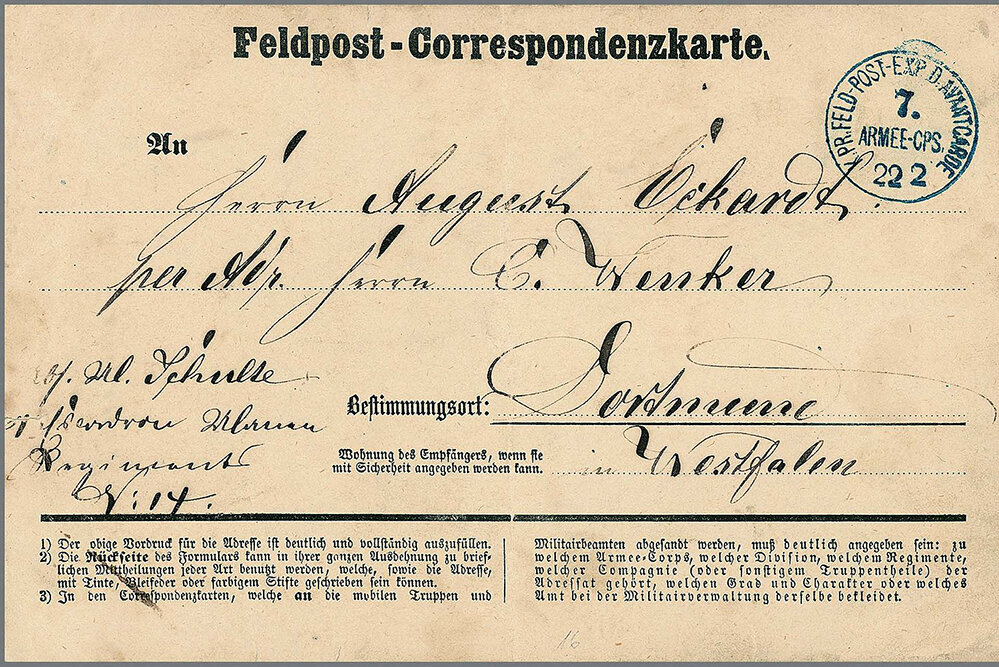 Feldpost-Correspondenzkarte.
K.PR.FELD-POST-EXP.D.AVANTGARDE
7.
ARMEE-CPS.
22 2
An
Herrn August Eckardt
per Adr. Herrn C. Wenker
Bestimmungsort: Dortmund
Wohnung des Empfängers, wenn sie
mit Sicherheit angegeben werden kann.
in Westfalen
Ul. Schulte
Escadron Ulanen
Regiments
N: 14.
1) Der obige Vordruck für die Adresse ist deutlich und vollständig auszufüllen.
2) Die Rückseite des Formulars kann in ihrer ganzen Ausdehnung zu brief-
lichen Mittheilungen jeder Art benutzt werden, welche, sowie die Adresse,
mit Tinte, Bleifeder oder farbigem Stifte geschrieben sein können.
3) In den Correspondenzkarten, welche an die mobilen Truppen und
Militairbeamten abgesandt werden, muß deutlich angegeben sein: zu
welchem Armee-Corps, welcher Division, welchem Regimente,
welcher Compagnie (oder sonstigem Truppentheile) der
Adressat gehört, welchen Grad und Charakter oder welches
Amt bei der Militairverwaltung derselbe bekleidet.
16